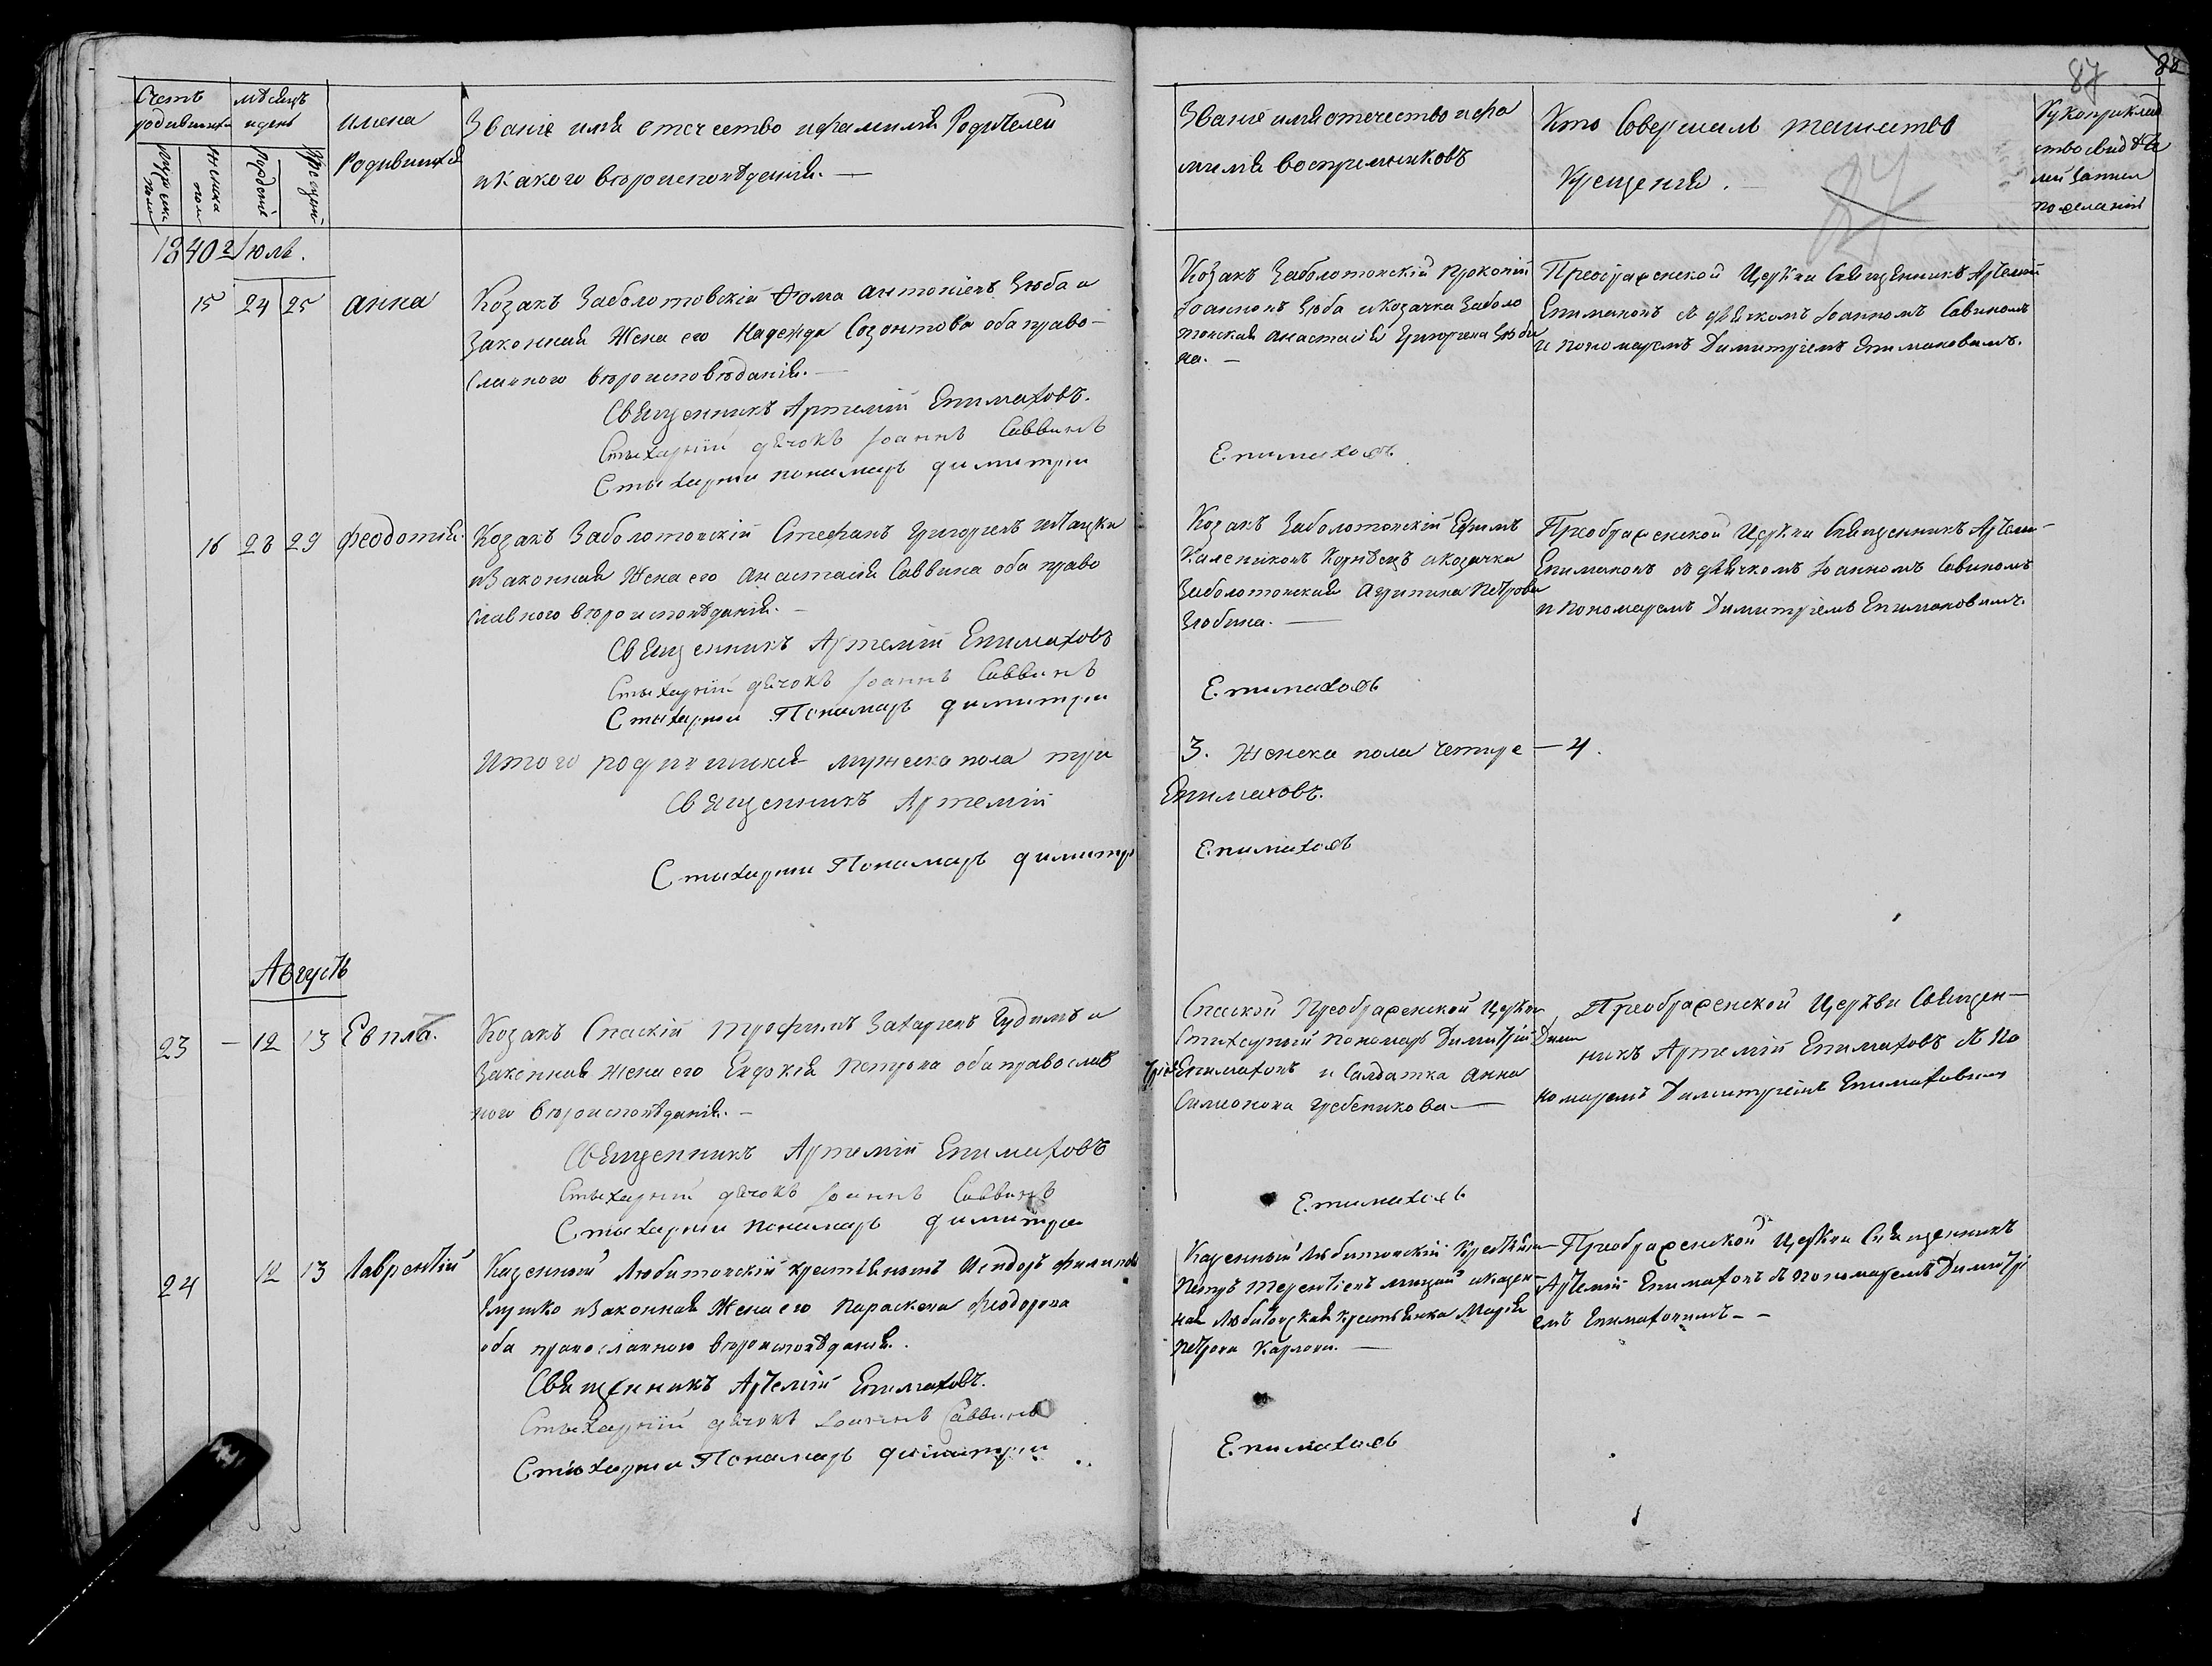 87 88
Счетъ
родившихся
мѣсяцъ
и день
имена
Родившихся
Званіе имя отечество и фамилія Родителей
и какого вѣроисповѣданія. —
мужеска
полу
женска
пол
рожденія
крещенія
Званіе имя отечество и фа
милія восприемниковъ
Кто Совершалъ таинство
Крещенія. —
87
Рукоприклад
ство свидѣте
лей записи
по желанію
1840 г Іюль.
15 24 25 анна
Козакъ Заболотовскій Фома антоніевъ Зюба и
Законная Жена его Надежда Созонтова оба право-
славного вѣроисповѣданія. —
Священникъ Артемій Епимаховъ.
Стыхарній дячокъ Іоаннъ Саввинъ
Стыхарни понамарь димитри
Козакъ Заболотовскій Прокопій
Іоанновъ Зюба и Козачка Заболо
товская анастасія Григорева Зюби
на. —
Епимаховъ
Преображенской Церкви Священникъ Артемій
Епимаховъ съ дячкомъ Іоанномъ Савиномъ
и пономаремъ Димитріемъ Епимаховимъ.
16 28 29 Феодотія.
Козакъ Заболотовскій Стефанъ Григоріевъ
и Законная Жена его Анастасія Саввина оба право
славного вѣроисповѣданія. —
Священникъ Артемій Епимаховъ
Стыхарній дячокъ Іоаннъ Саввинъ
Стыхарни Понамарь димитри
Козакъ Заболотовскій Ефимъ
Калениковъ и козачка
Заболотовская Агрипина Петрова
Зюбина. —
Епимаховъ
Преображенской Церкви Священникъ Артеми-
Епимаховъ съ дячкомъ Іоанномъ Савиномъ
и Пономаремъ Димитріемъ Епимаховимъ.
Итого родившихся мужеска пола три
3. Женска пола четире — 4.
Священникъ Артемій
Епимаховъ.
Стихарни Понамарь димитри
Епимаховъ
Августъ
23 — 12 13 Евплъ.
Козакъ Спаскій Трофимъ Захаріевъ Гудимъ и
Законная жена его Евдокія Петрова оба православ
ного вѣроисповѣданія. —
Священникъ Артемій Епимаховъ
Стыхарній дячокъ Іоаннъ Саввинъ
Стыхарни понамарь димитри
Спаской Преображенской Церкви
Стихарный пономарь Димитрій Дими
тріевъ Епимаховъ и Салдатка Анна
Симеонова Гребеникова —
Епимаховъ
Преображенской Церкви Священ-
никъ Артемій Епимаховъ съ По
номаремъ Димитріемъ Епимаховимъ
24 12 13 Лаврентій
Казенный Любитовскій крестянинъ Исидоръ Филипов
Глушко и Законная Жена его Параскева Феодорова
оба православного вѣроисповѣданія.
Священникъ Артемій Епимаховъ.
Стыхарній дячокъ Іоаннъ Саввинъ
Стихарни Понамарь димитри
Казенный Любитовскій Крестянин
Петръ Терентіевъ и казен-
ная Любитовская крестьянка Марія
Петрова Карпова. —
Епимаховъ
Преображенской Церкви Священникъ
Артемій Епимаховъ съ Пономаремъ Димитрі
емъ Епимаховимъ. —